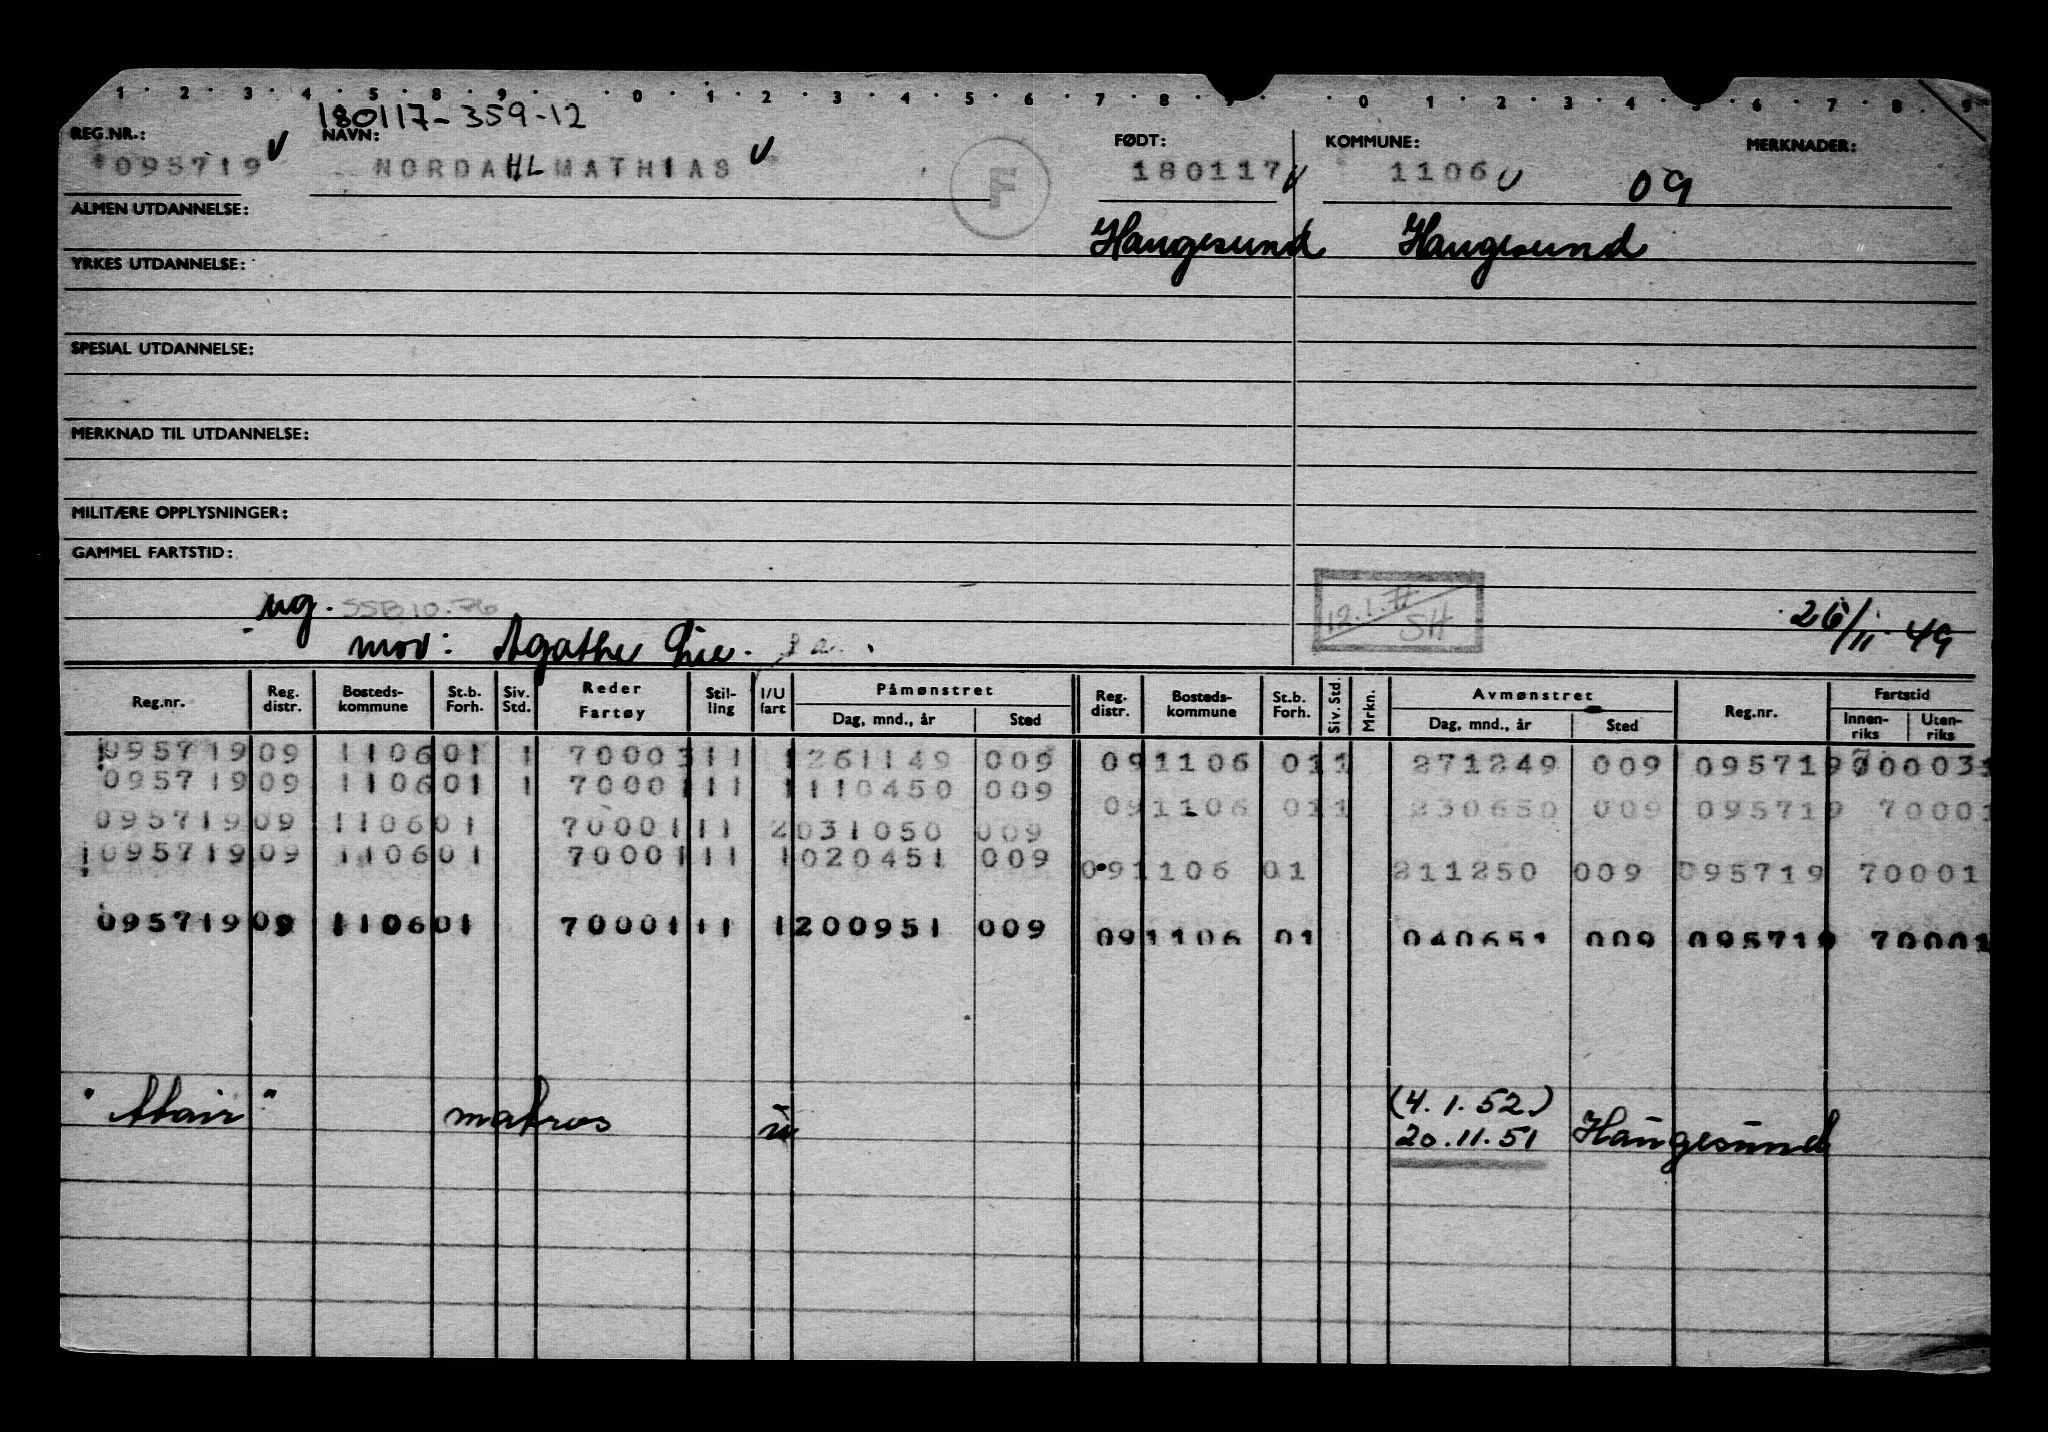 1 2 3 4 5 8 9 0 1 2 3 4 5 6 7 8 9 0 1 2 3 4 5 6 7 8 9
180117-359-12
REG.NR.: NAVN: FØDT: KOMMUNE: MERKNADER:
095719 NORDAHL MATHIAS F 180117 1106 09
ALMEN UTDANNELSE: Haugesund Haugesund
YRKES UTDANNELSE:
SPESIAL UTDANNELSE:
MERKNAD TIL UTDANNELSE:
MILITÆRE OPPLYSNINGER:
GAMMEL FARTSTID:
ug. SSB 10.76 12.1.77 SH 26/11-49
mor: Agathe
Reg.nr. Reg. distr. Bosteds-kommune St.b. Forh. Siv. Std. Reder Fartøy Stil-ling I/U fart Påmønstret Dag, mnd., år Sted Reg. distr. Bosteds-kommune St.b. Forh. Siv. Std. Mrkn. Avmønstret Dag, mnd., år Sted Reg.nr. Fartstid Innen-riks Uten-riks
095719 09 1106 01 1 70003 11 1 261149 009 09 1106 01 1 271249 009 095719 70003 1
095719 09 1106 01 1 70001 11 1 110450 009 09 1106 01 1 230650 009 095719 70001
095719 09 1106 01 70001 11 2 031050 009
095719 09 1106 01 70001 11 1 020451 009 09 1106 01 211250 009 095719 70001
095719 09 1106 01 70001 11 1 200951 009 09 1106 01 040651 009 095719 70001
(4.1.52.)
"Atair" matros u 20.11.51 Haugesund